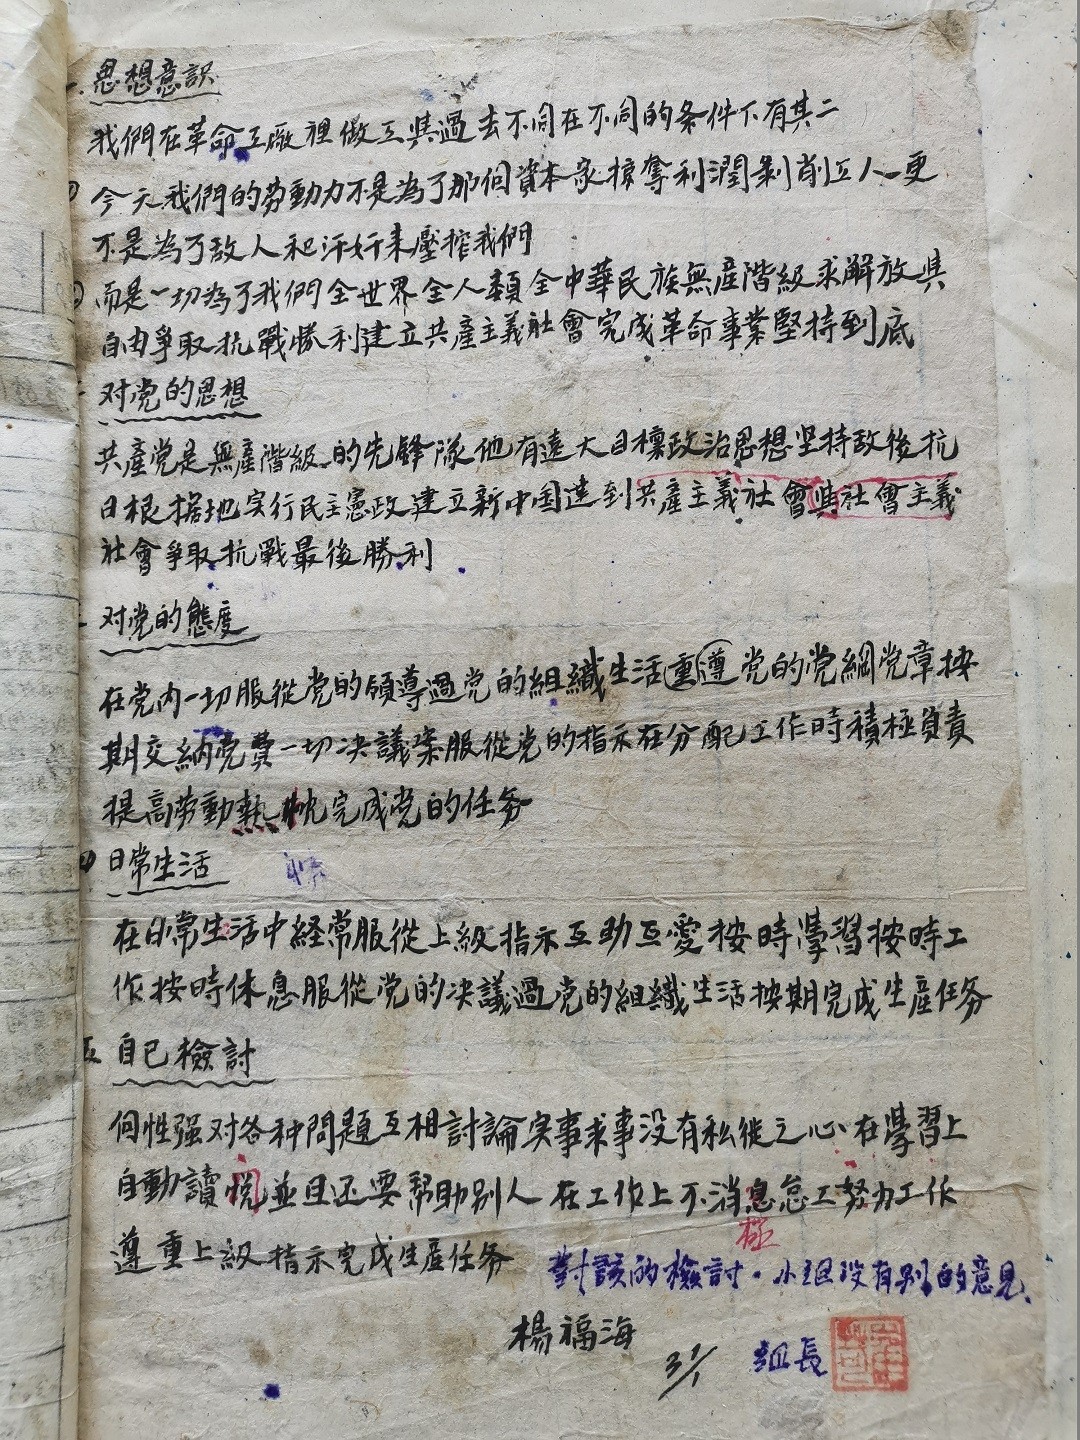 思想意識
我們在革命工廠裡做工與過去不同在不同的条件下有其二
今天我們的劳動力不是為了那個資本家掠奪利潤剝削工人一更
不是為了敌人和汗奸来壓搾我們
而是一切為了我們全世界全人類全中華民族無產階級求解放與
自由爭取抗戰勝利建立共產主義社會完成革命事業堅持到底
对党的思想
共產党是無產階級的先鋒隊他有遠大目標政治思想坚持敌後抗
日根据地实行民主憲政建立新中国達到共產主義社會與社會主義
社會爭取抗戰最後勝利
对党的態度
在党內一切服從党的領導過党的組織生活重遵党的党綱党章按
期交納党費一切决議案服從党的指示在分配工作時積極負責
提高劳動熱忱完成党的任务
四 日常生活
情
在日常生活中経常服從上級指示互助互愛按時學習按時工
作按時休息服從党的决議過党的組織生活按期完成生產任务
五 自己檢討
個性强对各种問題互相討論实事求事没有私徙之心在學習上
自動讀悦並且还要帮助别人在工作上不消息怠工努力工作
極
遵重上級指示完成生產任务
對該的檢討．小組没有别的意見、
楊福海
3/1
組長